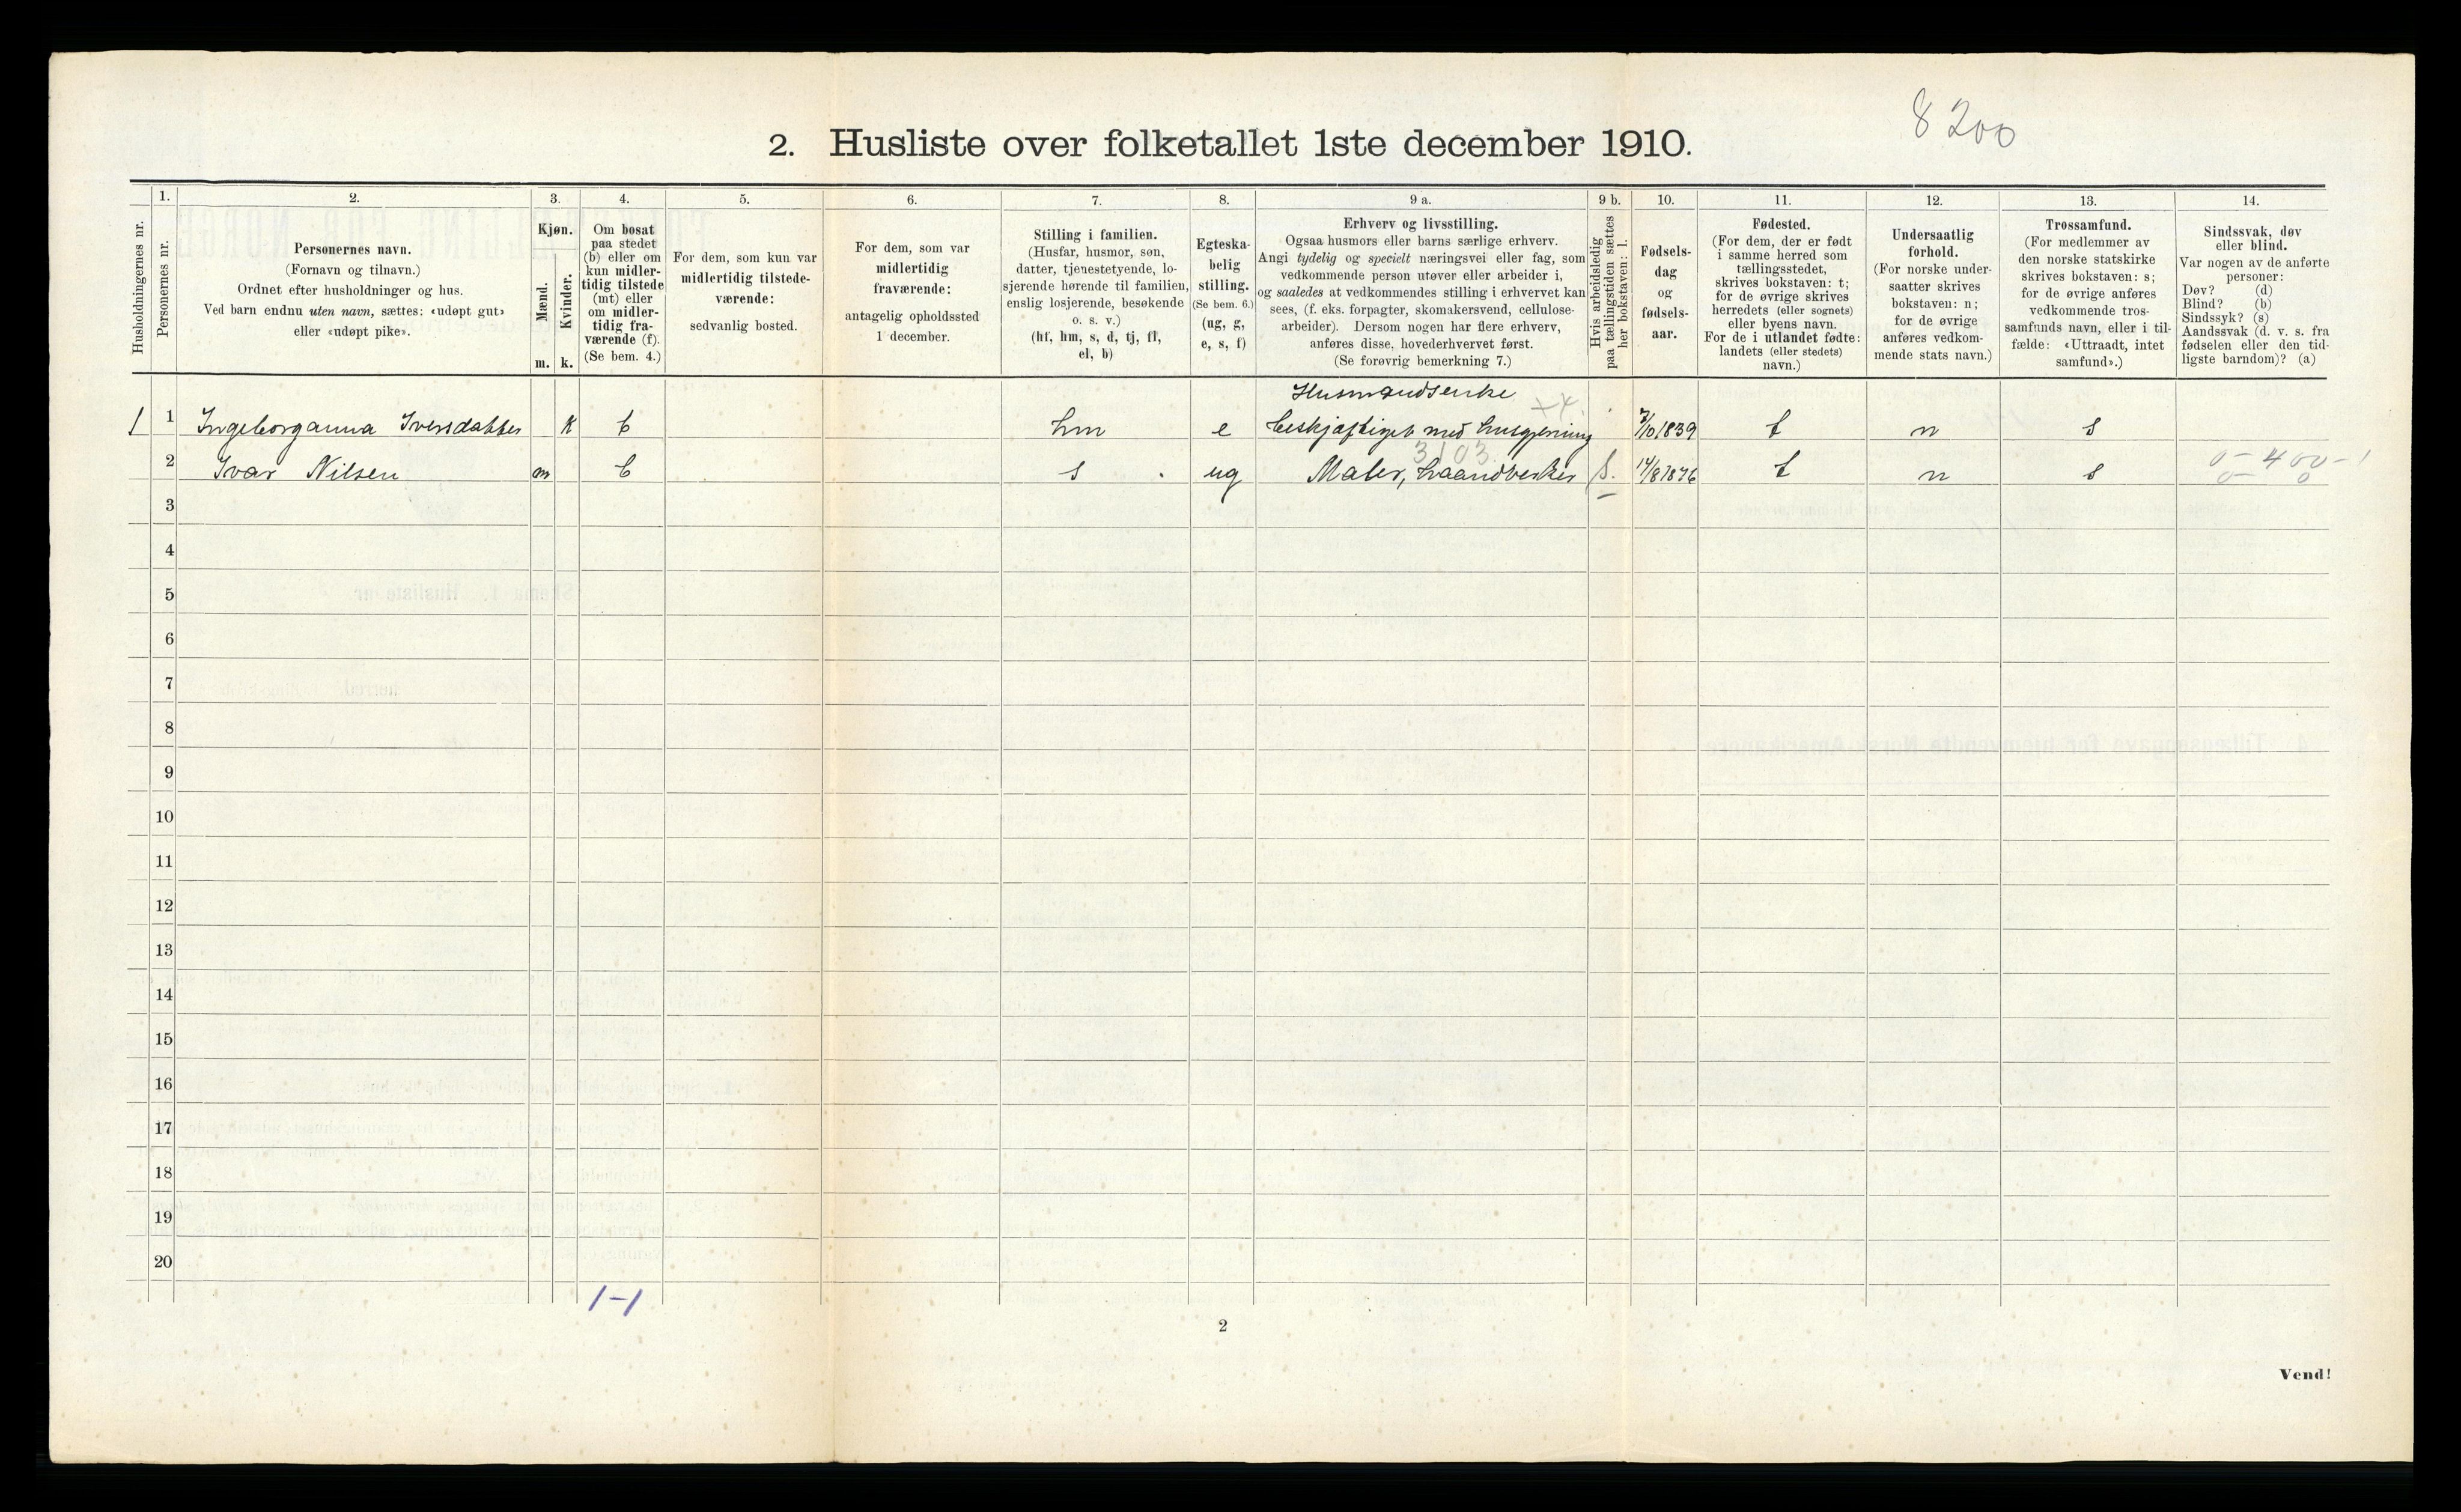 8200
2. Husliste over folketallet 1ste december 1910.
Husholdningernes nr.
1.
Personernes nr.
2.
Personernes navn.
(Fornavn og tilnavn.)
Ordnet efter husholdninger og hus.
Ved barn endnu uten navn, sættes: «udøpt gut»
eller «udøpt pike».
3.
Kjøn.
Mænd.
m.
Kvinder.
k.
4.
Om bosat
paa stedet
(b) eller om
kun midler-
tidig tilstede
(mt) eller
om midler-
tidig fra-
værende (f).
(Se bem. 4.)
5.
For dem, som kun var
midlertidig tilstede-
værende:
sedvanlig bosted.
6.
For dem, som var
midlertidig
fraværende:
antagelig opholdssted
1 december.
7.
Stilling i familien.
(Husfar, husmor, søn,
datter, tjenestetyende, lo-
sjerende hørende til familien,
enslig losjerende, besøkende
o. s. v.)
(hf, hm, s, d, tj, fl,
el, b)
8.
Egteska-
belig
stilling.
(Se bem. 6.)
(ug, g,
e, s, f)
9 a.
Erhverv og livsstilling.
Ogsaa husmors eller barns særlige erhverv.
Angi tydelig og specielt næringsvei eller fag, som
vedkommende person utøver eller arbeider i,
og saaledes at vedkommendes stilling i erhvervet kan
sees, (f. eks. forpagter, skomakersvend, cellulose-
arbeider). Dersom nogen har flere erhverv,
anføres disse, hovederhvervet først.
(Se forøvrig bemerkning 7.)
9 b.
Hvis arbeidsledig
paa tællingstiden sættes
her bokstaven: l.
10.
Fødsels-
dag
og
fødsels-
aar.
11.
Fødested.
(For dem, der er født
i samme herred som
tællingsstedet,
skrives bokstaven: t;
for de øvrige skrives
herredets (eller sognets)
eller byens navn.
For de i utlandet fødte:
landets (eller stedets)
navn.)
12.
Undersaatlig
forhold.
(For norske under-
saatter skrives
bokstaven: n;
for de øvrige
anføres vedkom-
mende stats navn.)
13.
Trossamfund.
(For medlemmer av
den norske statskirke
skrives bokstaven: s;
for de øvrige anføres
vedkommende tros-
samfunds navn, eller i til-
fælde: «Uttraadt, intet
samfund».)
14.
Sindssvak, døv
eller blind.
Var nogen av de anførte
personer:
Døv? (d)
Blind? (b)
Sindssyk? (s)
Aandssvak (d. v. s. fra
fødselen eller den tid-
ligste barndom)? (a)
Husmandsenke
1 1 Ingeborganna Iversdatter K b hm e beskjæftiget med husgjerning 7/10 1839 t n s
3103
2 Ivar Nilsen m b s ug Maler, haandverker 14/8 1876 t n s
3
4
5
6
7
8
9
10
11
12
13
14
15
16
17
18
19
20
1-1
2
Vend!